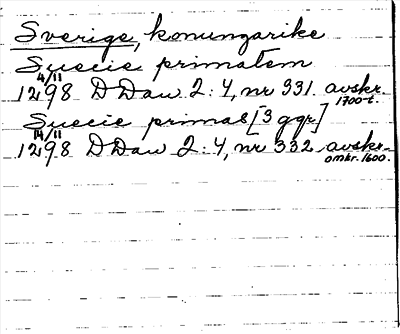 Sverige, konungarike
Suecie primatem
4/11
1298 DDan 2:4, nr 331. avskr.
1700-t.
Suecie primas [3 ggr]
14/11
1298 DDan 2:4, nr 332 avskr.
omkr. 1600.